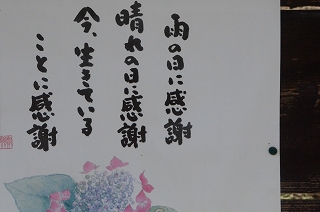 雨の日に感謝
晴れの日に感謝
今、生きている
ことに感謝